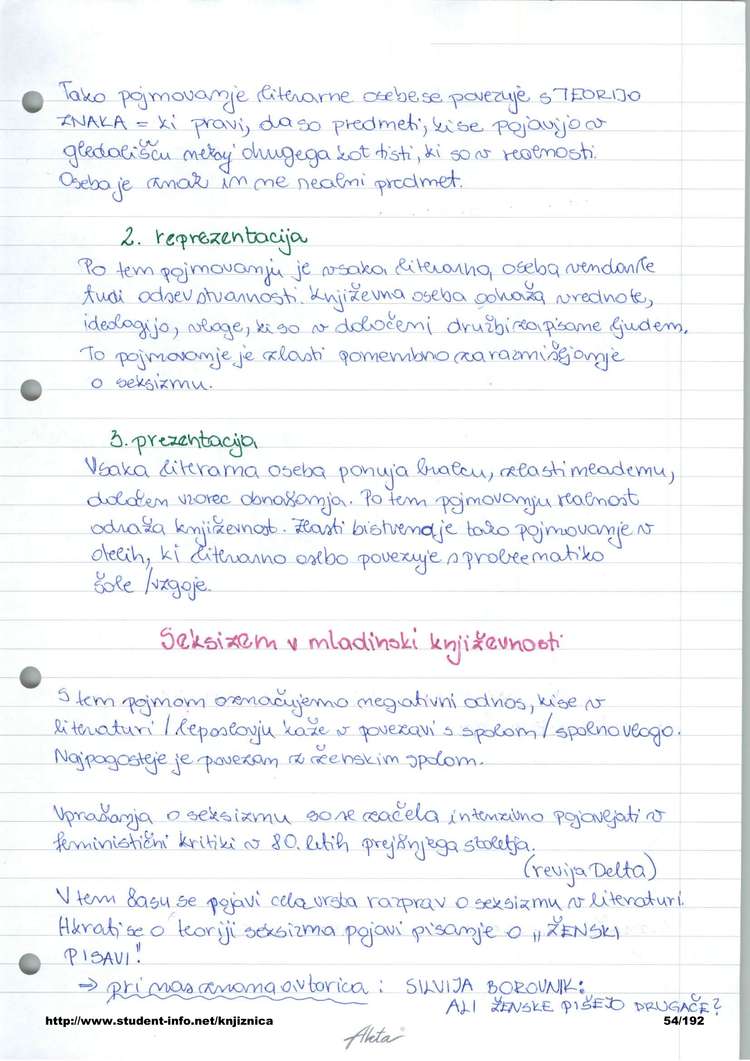 Tako pojmovanje literarne osebe se povezuje s TEORIJO
ZNAKA = ki pravi, da so predmeti, ki se pojavijo v
gledališču nekaj drugega kot tisti, ki so v realnosti.
Oseba je znak in ne realni predmet.
2. reprezentacija
Po tem pojmovanju je vsaka literarna oseba vendarle
tudi odsev stvarnosti. Književna oseba pokaža vrednote,
ideologijo, vloge, ki so v določeni družbi zapisane ljudem.
To pojmovanje je zlasti pomembno za razmišljanje
o seksizmu.
3. prezentacija
Vsaka literarna oseba ponuja bralcu, zlasti mlademu,
določen vzorec obnašanja. Po tem pojmovanju realnost
odraža književnost. Zlasti bistveno je tako pojmovanje v
delih, ki literarno osebo povezuje s problematiko
šole / vzgoje.
Seksizem v mladinski književnosti
S tem pojmom označujemo negativni odnos, ki se v
literaturi / leposlovju kaže v povezavi s spolom / spolno vlogo.
Najpogosteje je povezan z ženskim spolom.
Vprašanja o seksizmu so se začela intenzivno pojavljati v
feministični kritiki v 80. letih prejšnjega stoletja.
(revija Delta)
V tem času se pojavi cela vrsta razprav o seksizmu v literaturi.
Hkrati se o teoriji seksizma pojavi pisanje o „ŽENSKI
PISAVI!"
→ pri nas znana avtorica : SILVIJA BOROVNIK:
ALI ŽENSKE PIŠEJO DRUGAČE?
http://www.student-info.net/knjiznica
54/192
Akta